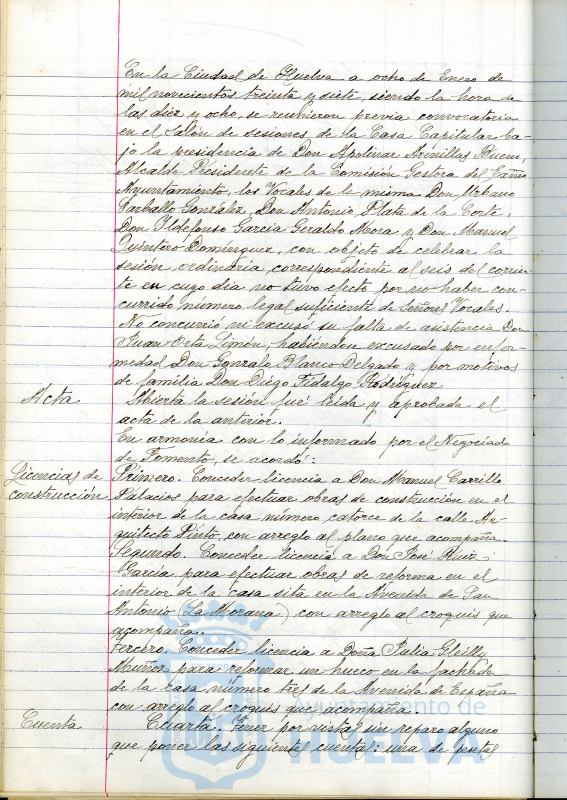 En la Ciudad de Huelva a ocho de Enero de
mil novecientos treinta y siete, siendo la hora de
las diez y ocho, se reunieron previa convocatoria
en el Salón de sesiones de la Casa Capitular ba-
jo la presidencia de Don Apolinar Arenillas Bueno,
Alcalde Presidente de la Comisión Gestora del Excmo
Ayuntamiento, los Vocales de la misma Don Urbano
Carballo González, Don Antonio Plata de la Corte,
Don Ildefonso García Geraldo Mora y Don Manuel
Quintero Domínguez, con objeto de celebrar la
sesión ordinaria correspondiente al seis del corrien-
te en cuyo día no tuvo efecto por no haber con-
currido número legal suficiente de Señores Vocales.
No concurrió ni excusó su falta de asistencia Don
Juan Orta Limón, habiéndose excusado por enfer-
medad Don Gonzalo Blanco Delgado y por motivos
de familia Don Diego Fidalgo Rodríguez
Acta
Abierta la sesión, fué leída y aprobada el
acta de la anterior.
En armonía con lo informado por el Negociado
de Fomento, se acordó:
Licencias de
construcción
Primero. Conceder licencia a Don Manuel Carrillo
Palacios para efectuar obras de construcción en el
interior de la casa número catorce de la calle Ar-
quitecto Pinto, con arreglo al plano que acompaña.
Segundo. Conceder licencia a Don José Ruiz
García para efectuar obras de reforma en el
interior de la casa sita en la Avenida de San
Antonio (La Morana) con arreglo al croquis que
acompaña.
Tercero. Conceder licencia a Doña Julia
Muñoz para reformar un hueco en la fachada
de la casa número tres de la Avenida de España
con arreglo al croquis que acompaña.
Cuenta
Cuarta. Tener por vistas sin reparo alguno
que poner las siguientes cuentas: una de pesetas
Ayuntamiento de
HUELVA